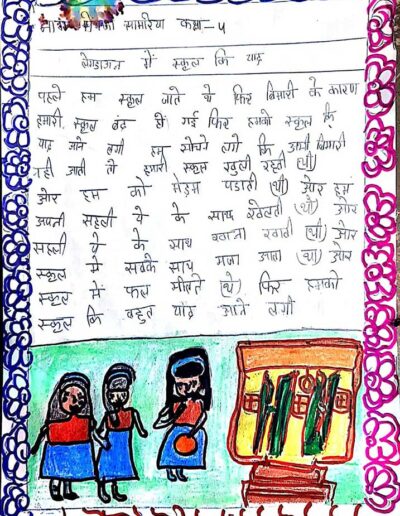 सामरिया कक्षा-५
लोगडाउन में स्कूल कि याद
पहले हम स्कूल जाते थे फिर बिमारी के कारण
हमारी स्कूल बंद हो गई फिर हमको स्कूल कि
याद आने लगी हम सोचने लगे कि आगी बिमारी
नही आती तो हमारी स्कूल खुली रहती (थी)
ओर हम को मेडम पडाती (थी) ओर हम
अपनी सहली ये के साथ खेलती (थी) ओर
सहली ये के साथ खाना खाती (थी) ओर
स्कूल मे सबके साथ मजा आता (था) ओर
स्कूल में फल मीलते (थे) फिर हमको
स्कूल कि बहुत याद आने लगी